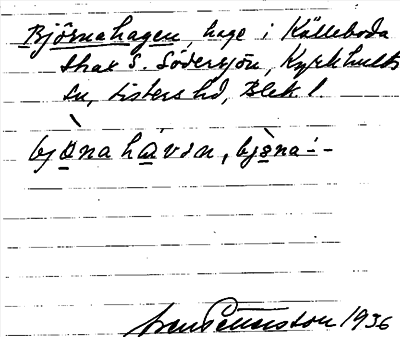 Björnahagen, hage i Källeboda
S. Södersjön, Kyrkhults
sn, Listers hd, Blek l.
bjona havon, bjona--
Pettersson 1936